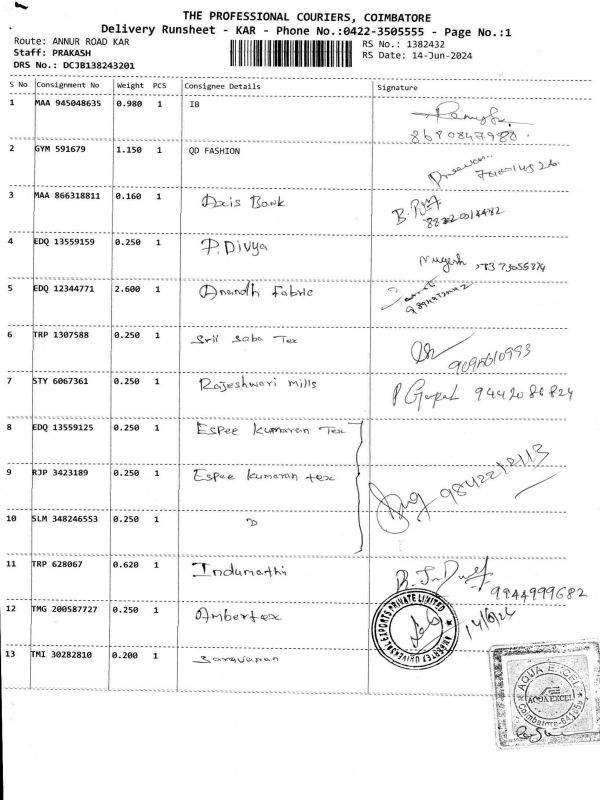 THE PROFESSIONAL COURIERS, COIMBATORE
Delivery Runsheet - KAR - Phone No.:0422-3505555 - Page No.:1
Route: ANNUR ROAD KAR
RS No.: 1382432
Staff: PRAKASH
RS Date: 14-Jun-2024
DRS No.: DCJB138243201
S No Consignment No Weight PCS Consignee Details Signature
1 MAA 945048635 0.980 1 IB
8680847988
2 GYM 591679 1.150 1 QD FASHION
3 MAA 866318811 0.160 1 Axis Bank
4 EDQ 13559159 0.250 1 P. Divya
5 EDQ 12344771 2.600 1 Anandh Fabric
6 TRP 1307588 0.250 1 Srii Saba Tex
7 STY 6067361 0.250 1 Rajeshwari mills P Gopal 9442086824
8 EDQ 13559125 0.250 1 Espee kumaran Tex
9 RJP 3423189 0.250 1 Espee kumaran tex 9842212113
10 SLM 348246553 0.250 1
11 TRP 628067 0.620 1 Indumathi
9944999682
12 TMG 200587727 0.250 1 Ambertex 14/6/24
UNIVERSAL EXPORTS PRIVATE LIMITED
13 TMI 30282810 0.200 1 Saravanan
AQUA EXCEL
AQUA EXCEL